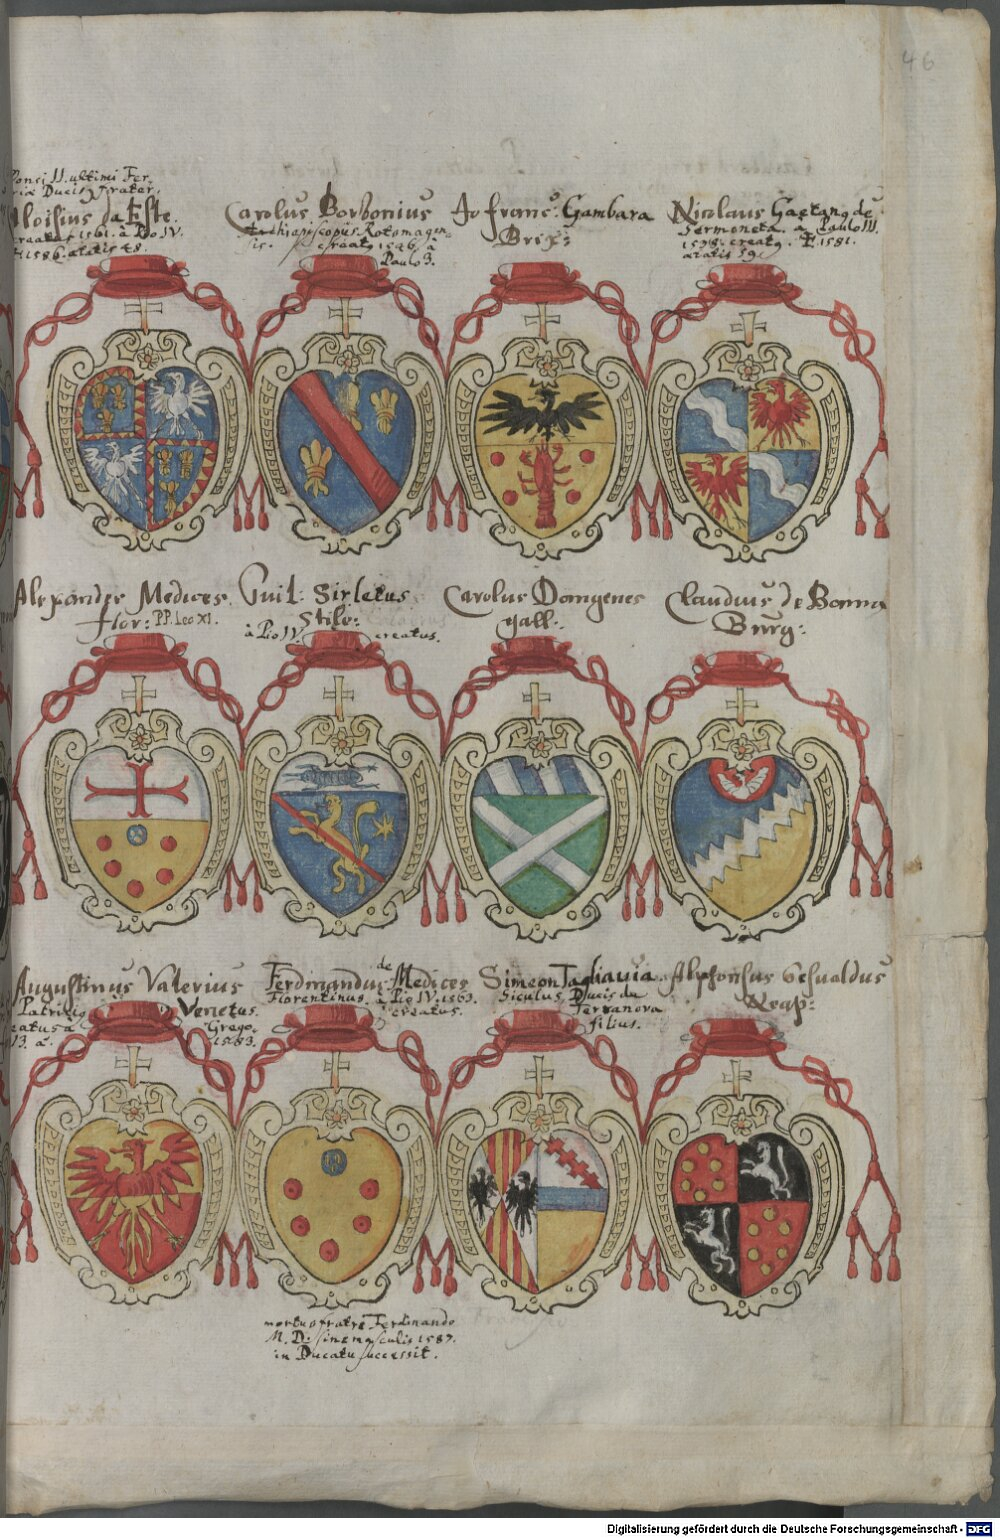 46
II. ultimi Fer-
Ducis frater.
Aloisius da Este.
creatus 1561. à Pio IV.
1586. ætatis 48.
Carolus Borbonius
Archiepiscopus Rotomagen-
sis. creatus 1546 à
Paulo 3.
Jo franc: Gambara
Brix:
Nicolaus Gaetang de
Sermoneta. a Paulo III.
1538. creatg. 1581.
ætatis 59.
Alexander Medices
flor: PP. Leo XI.
Guil: Sirletus
Stilo:
à Pio IV. creatus.
Carolus Domgenes
gall:
Claudius de Bauma
Burg:
Augustinus Valerius
Patricig Venetus.
creatus a Grego.
13. a. 1583.
Ferdinandus de Medices
Florentinus. à Pio IV. 1563.
creatus.
Simeon Tagliauia
Siculus Ducis da
Terranova
filius.
Alphonsus Gesualdus
Neap:
mortuo fratre Ferdinando
M. D. sine masculis 1587.
in Ducatu successit.
Digitalisierung gefördert durch die Deutsche Forschungsgemeinschaft - DFG